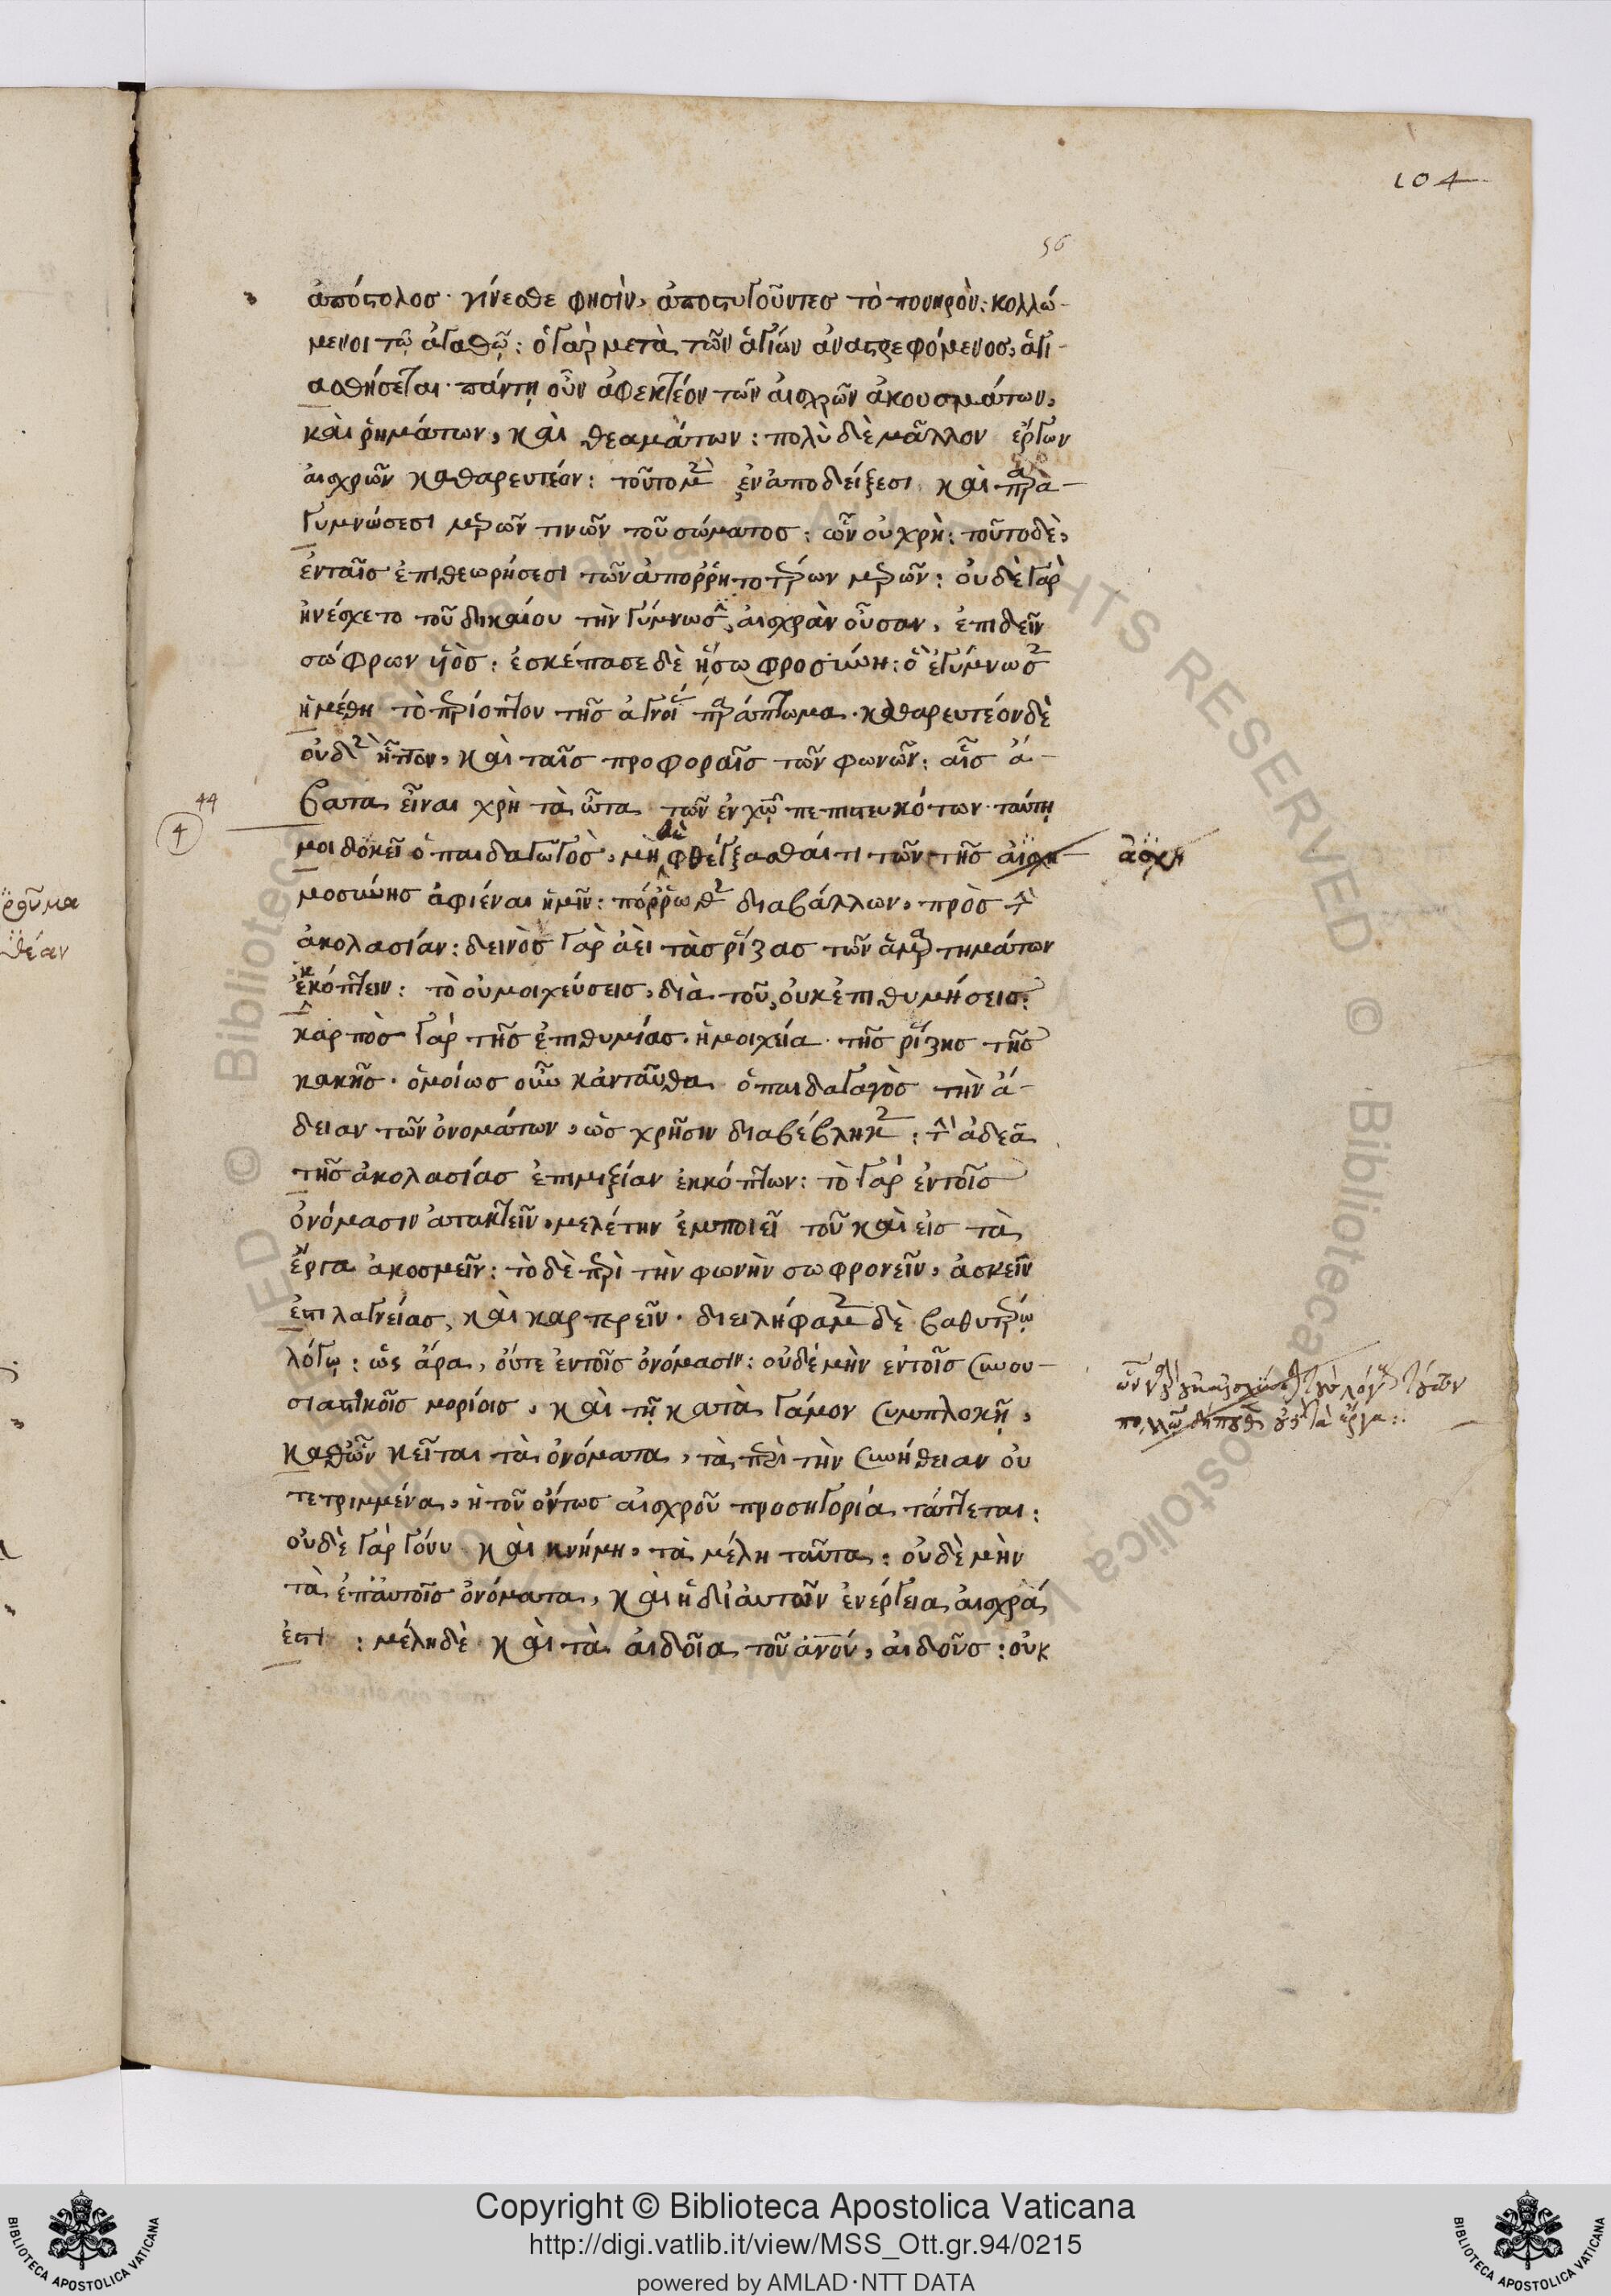 104
56
ἀπόστολος· γίνεσθε φησὶν, ἀποστυγοῦντες τὸ πονηρὸν: κολλώ-
μενοι τῷ ἀγαθῷ: ὁ γὰρ μετὰ τῶν ἁγίων ἀναστρεφόμενος, ἁγι-
ασθήσεται· πάντῃ οὖν ἀφεκτέον τῶν αἰσχρῶν ἀκουσμάτων,
καὶ ῥημάτων, καὶ θεαμάτων: πολὺ δὲ μᾶλλον ἔργων
αἰσχρῶν καθαρευτέον: τοῦτο μὲν ἐν ἀποδείξεσι καὶ παρα-
γυμνώσεσι μερῶν τινῶν τοῦ σώματος: ὧν οὐ χρὴ: τοῦτο δὲ,
ἐν ταῖς ἐπιθεωρήσεσι τῶν ἀπορρητοτέρων μερῶν: οὐδὲ γὰρ
ἠνέσχετο τοῦ δικαίου τὴν γύμνωσιν, αἰσχρὰν οὖσαν, ἐπιδεῖν
σώφρων υἱὸς: ἐσκέπασε δὲ ἡ σωφροσύνη: ὃ ἐγύμνωσεν
ἡ μέθη τὸ περίοπτον τῆς ἀγνοίας παράπτωμα· καθαρευτέον δὲ
οὐδὲν ἧττον, καὶ ταῖς προφοραῖς τῶν φωνῶν: αἷς ἄ-
44
4
βατα εἶναι χρὴ τὰ ὦτα τῶν ἐν χῶ πεπιστευκότων· ταύτῃ
μοι δοκεῖ ὁ παιδαγωγὸς, μὴ δὲ φθέγξασθαί τι τῶν τῆς αἰσχη-
ἀσχη
μοσύνης ἀφιέναι ἡμῖν: πόρρωθεν διαβάλλων, πρὸς τὴν
ἀκολασίαν: δεινὸς γὰρ ἀεὶ τὰς ῥίζας τῶν ἁμαρτημάτων
ἐκκόπτειν: τὸ οὐ μοιχεύσεις, διὰ τοῦ, οὐκ ἐπιθυμήσεις:
καρπὸς γὰρ τῆς ἐπιθυμίας, ἡ μοιχεία· τῆς ῥίζης τῆς
κακῆς· ὁμοίως οὖν κἀνταῦθα ὁ παιδαγωγὸς τὴν ἄ-
δειαν τῶν ὀνομάτων, ὡς χρῆσιν διαβέβληκεν: τὴν ἀδεᾶ
τῆς ἀκολασίας ἐπιμιξίαν ἐκκόπτων: τὸ γὰρ ἐν τοῖς
ὀνόμασιν ἀτακτεῖν, μελέτην ἐμποιεῖ τοῦ καὶ εἰς τὰ
ἔργα ἀκοσμεῖν: τὸ δὲ περὶ τὴν φωνὴν σωφρονεῖν, ἀσκεῖν
ἐστι λαγνείας, καὶ καρτερεῖν· διειλήφαμεν δὲ βαθυτέρῳ
λόγῳ: ὡς ἄρα, οὔτε ἐν τοῖς ὀνόμασιν: οὐδὲ μὴν ἐν τοῖς συνου-
σιαστικοῖς μορίοις, καὶ τῇ κατὰ γάμον συμπλοκῇ,
καθ' ὧν κεῖται τὰ ὀνόματα, τὰ περὶ τὴν συνήθειαν οὐ
τετριμμένα, ἡ τοῦ ὄντως αἰσχροῦ προσηγορία τάττεται:
οὐδὲ γὰρ γόνυ καὶ κνήμη, τὰ μέλη ταῦτα: οὐδὲ μὴν
τὰ ἐπ' αὐτοῖς ὀνόματα, καὶ ἡ δι' αὐτῶν ἐνέργεια αἰσχρά
ἐστι: μέλη δὲ καὶ τὰ αἰδοῖα τοῦ ἀνου, αἰδοῦς: οὐκ
Copyright © Biblioteca Apostolica Vaticana
http://digi.vatlib.it/view/MSS_Ott.gr.94/0215
powered by AMLAD·NTT DATA